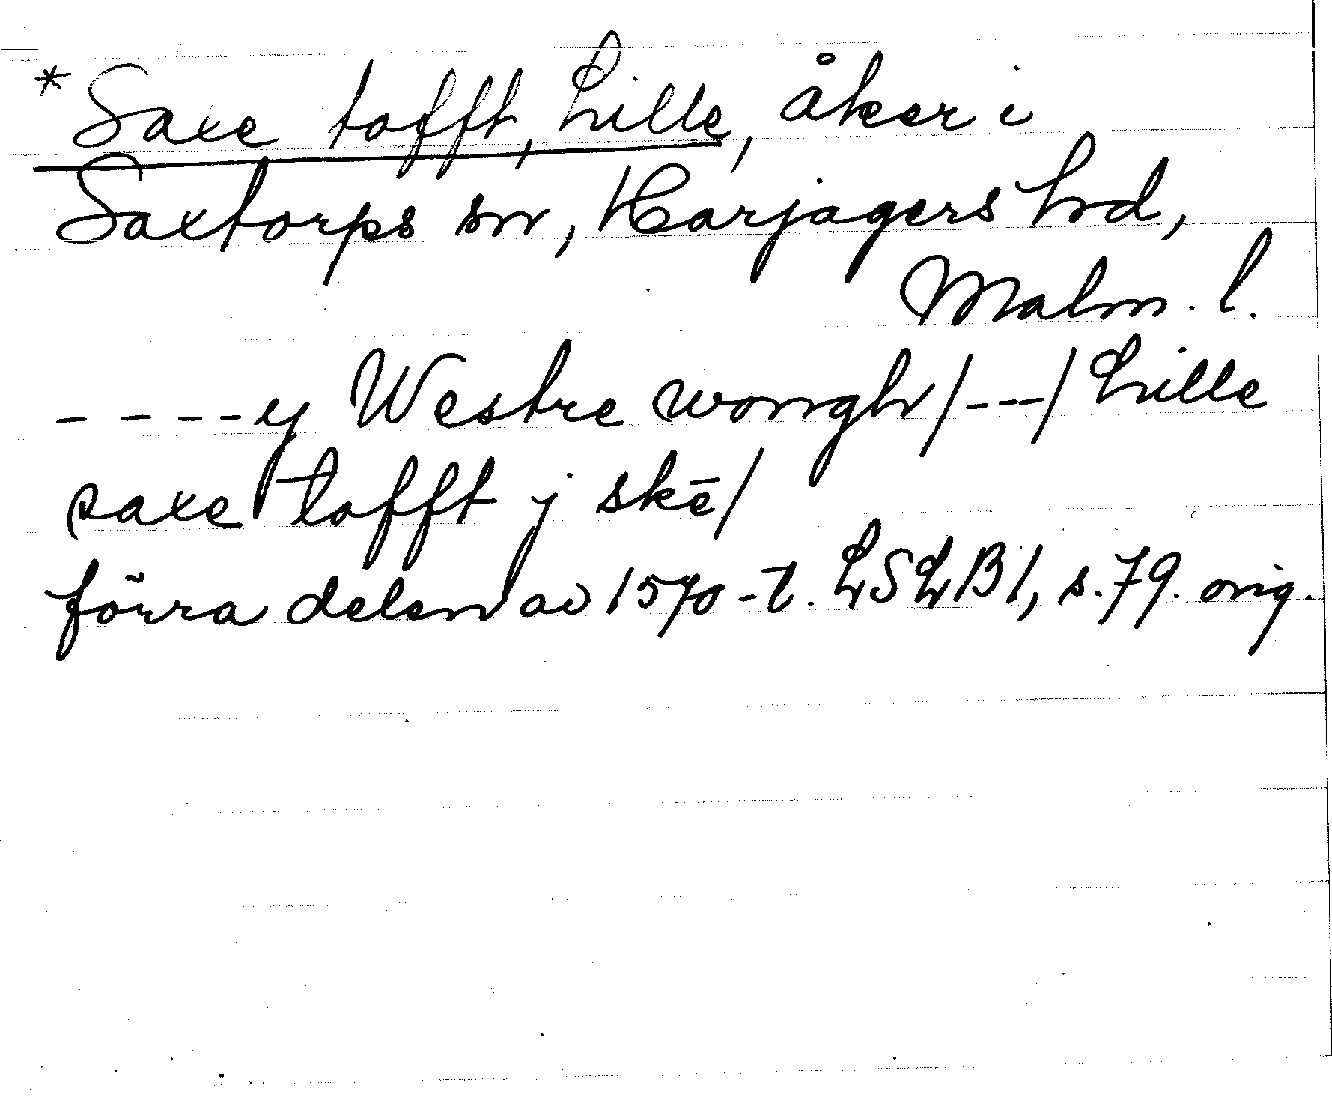 *Saxe tofft, Lille, åker i
Saxtorps sn, Harjagers hd,
Malm. l.
- - - - y Westre wongh/---/Lille
saxe tofft j skē/
förra delen av 1570-t. LSLB1, s. 79. orig.